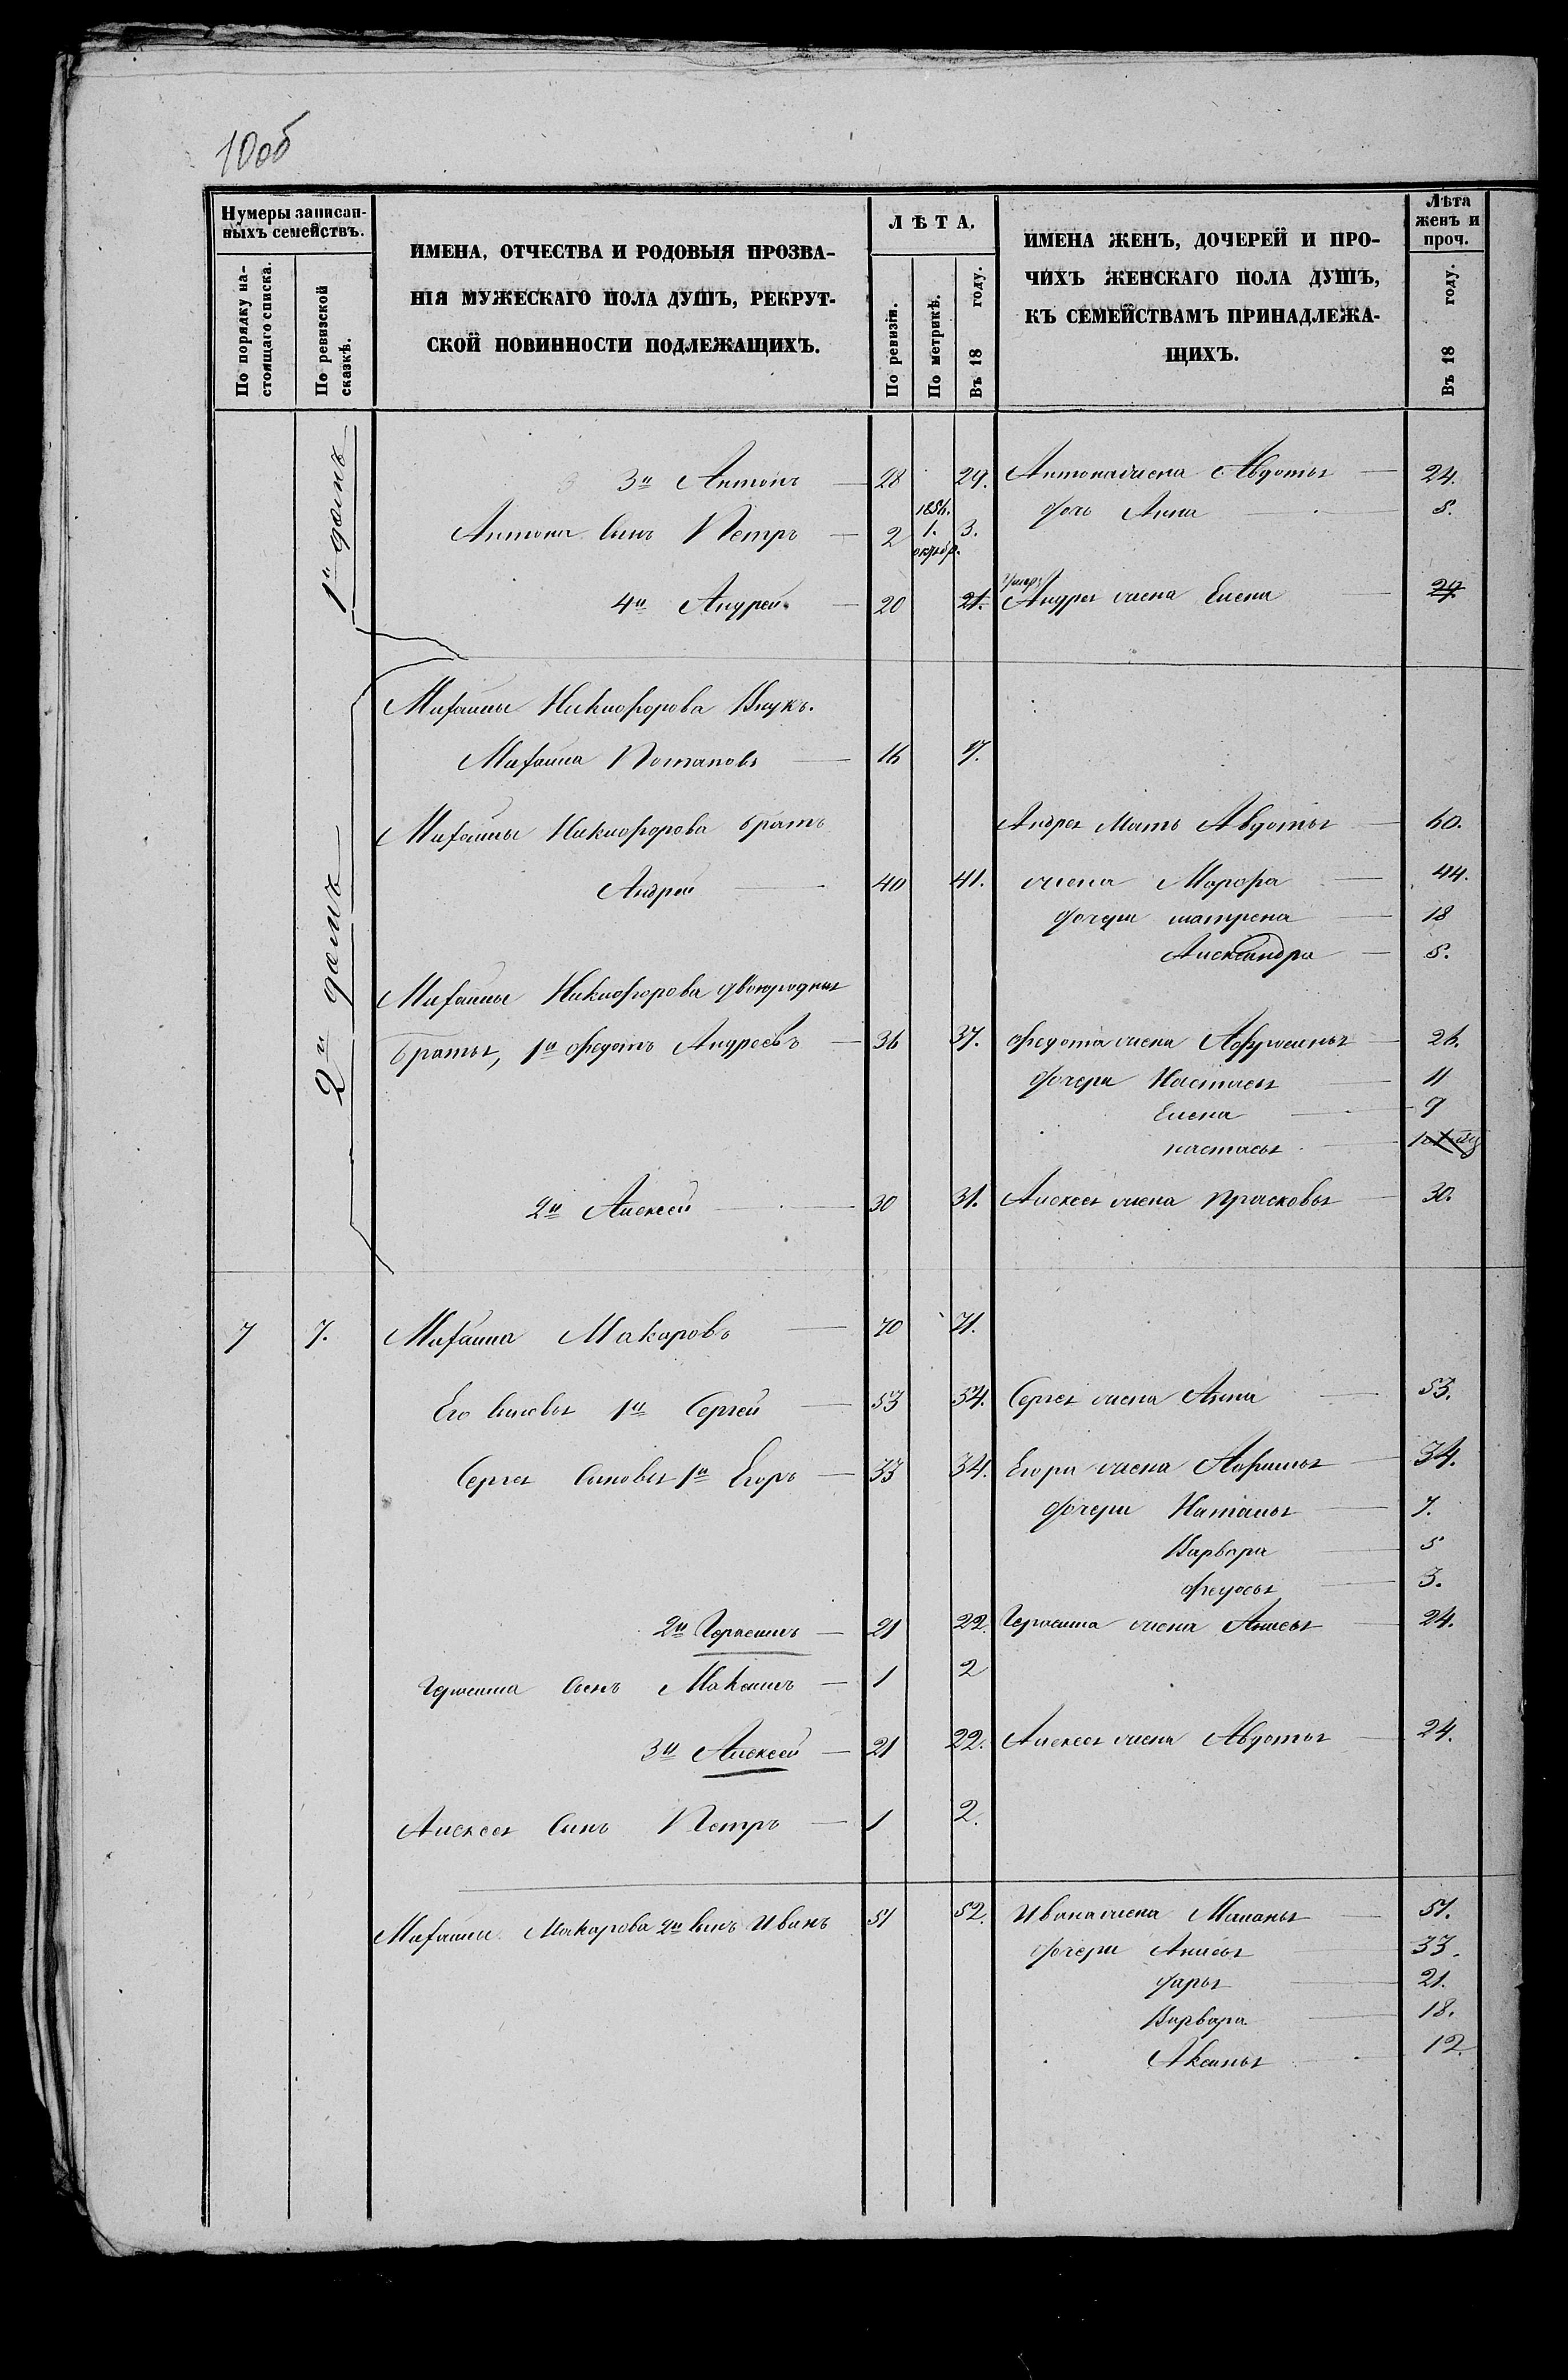 10об
Нумеры записан-
ныхъ семействъ.
По порядку на-
стоящаго списка.
По ревизской
сказкѣ.
ИМЕНА, ОТЧЕСТВА И РОДОВЫЯ ПРОЗВА-
НІЯ МУЖЕСКАГО ПОЛА ДУШЪ, РЕКРУТ-
СКОЙ ПОВИННОСТИ ПОДЛЕЖАЩИХЪ.
ЛѢТА.
По ревизіи.
По метрикѣ.
Въ 18 году.
ИМЕНА ЖЕНЪ, ДОЧЕРЕЙ И ПРО-
ЧИХЪ ЖЕНСКАГО ПОЛА ДУШЪ,
КЪ СЕМЕЙСТВАМЪ ПРИНАДЛЕЖА-
ЩИХЪ.
Лѣта
женъ и
проч.
Въ 18 году.
1й домъ
3й Антонъ 28 29. Антона жена Авдотья 24.
дочь Анна 5.
Антона сынъ Петръ 2 1856. 1. октяб. 3.
4й Андрей 20 21. Андрея жена Елена 27.
2й домъ
Михаилы Никифорова Внукъ.
Михаила Потаповъ 16 17.
Михаилы Никифорова братъ Андрея Мать Авдотья 60.
Андрей 40 41. жена Марфа 44.
дочери матрена 18
Александра 5.
Михаилы Никифорова двоюродныя
братья, 1й Федотъ Андреевъ 36 37. Федота жена Афросинья 26.
дочери Настасья 11
Елена 9
настасья
2й Алексей 30 31. Алексея жена прасковья 30.
7 7. Михаила Макаровъ 70 71.
Его сыновья 1й Сергей 53 54. Сергея жена Анна 53.
Сергея Сыновья 1й Егоръ 33 34. Егора жена Афимья 34.
дочери Наталья 7.
Варвара 5
Федосья 3.
2й Герасимъ 21 22. Герасима жена Анисья 24.
Герасима Сынъ Максимъ 1 2
3й Алексей 21 22. Алексея жена Авдотья 24.
Алексея Сынъ Петръ 1 2.
Михаилы Макарова 2й сынъ Иванъ 51 52. Ивана жена Маланья 51.
дочери Анисья 33.
Дарья 21.
Варвара 18.
Аксинья 12.